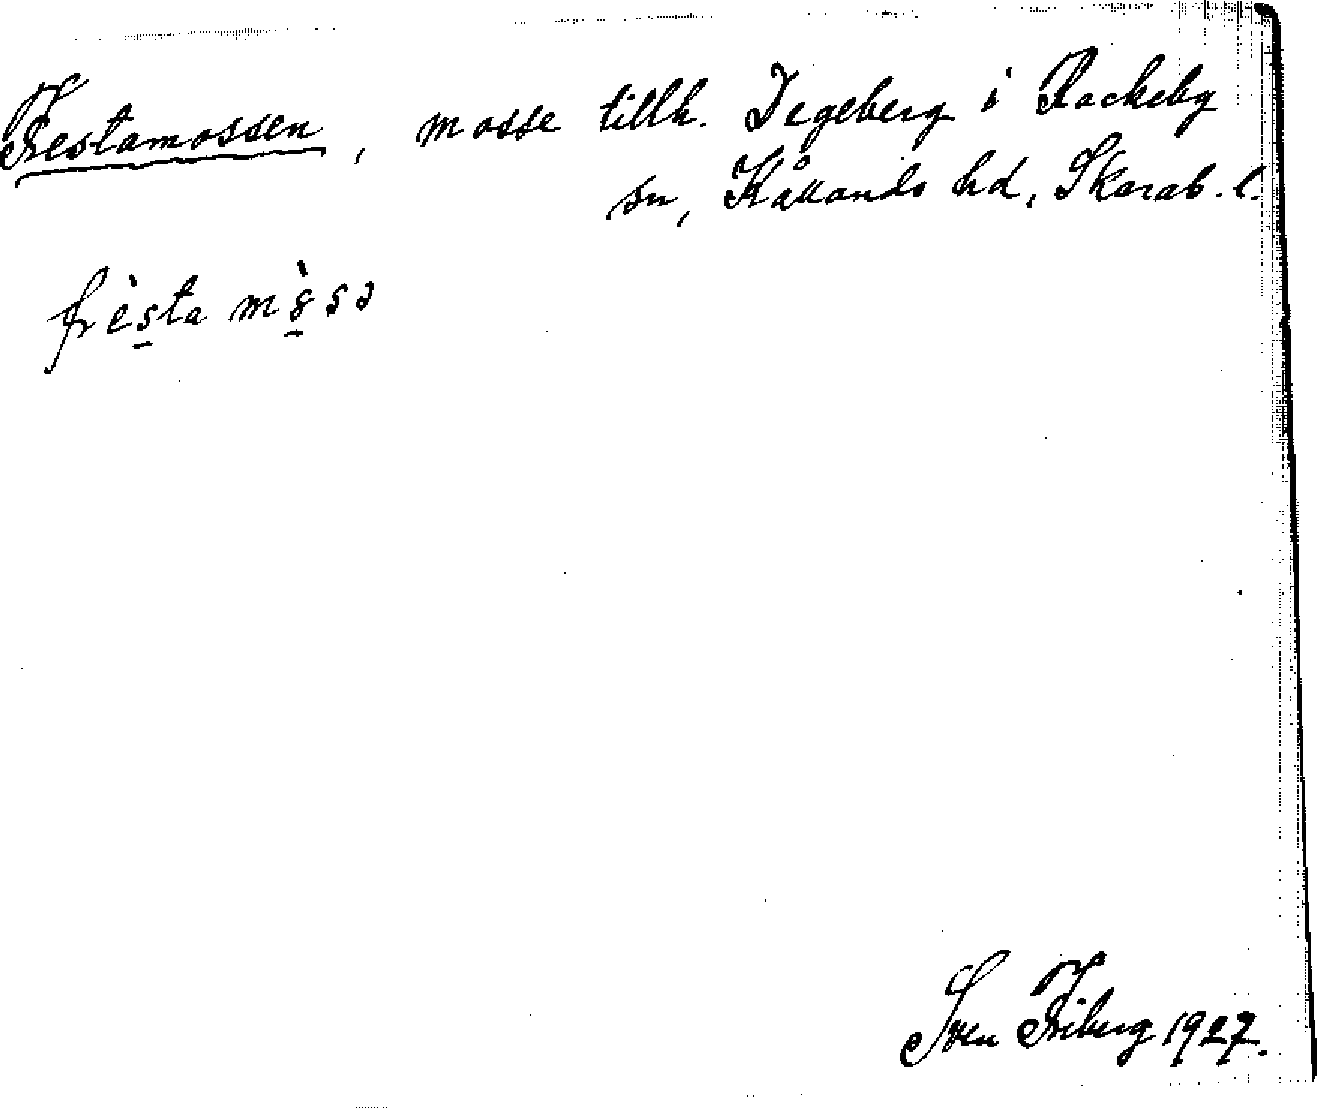 Frestamossen, mosse tillh. Degeberg i Rackeby
sn, Kållands hd, Skarab. l.
frèsta mòsa
Sven Friberg 1927.